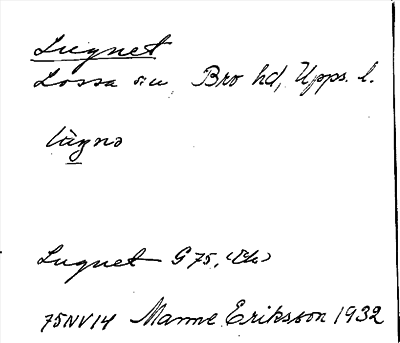 Lugnet
Lossa sn Bro hd, Upps. l.
lùgnə
Lugnet G 75, (Ek)
75NV14 Manne Eriksson 1932